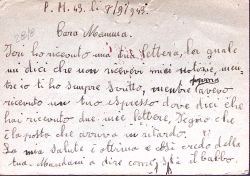 P. M. 43. li 8/9/943.
Cara Mamma.
Ieri ho ricevuto una tua lettera, la quale
mi dici che non ricevevi miei notizie, men
tre io ti ho sempre scritto, mentre
ricevendo un tuo espresso dove dici che
hai ricevuto due mie lettere, segno che
è la posta che arriva in ritardo.
La mia salute è ottima e così credo della
tua. Mandami a dire come sta il babbo.